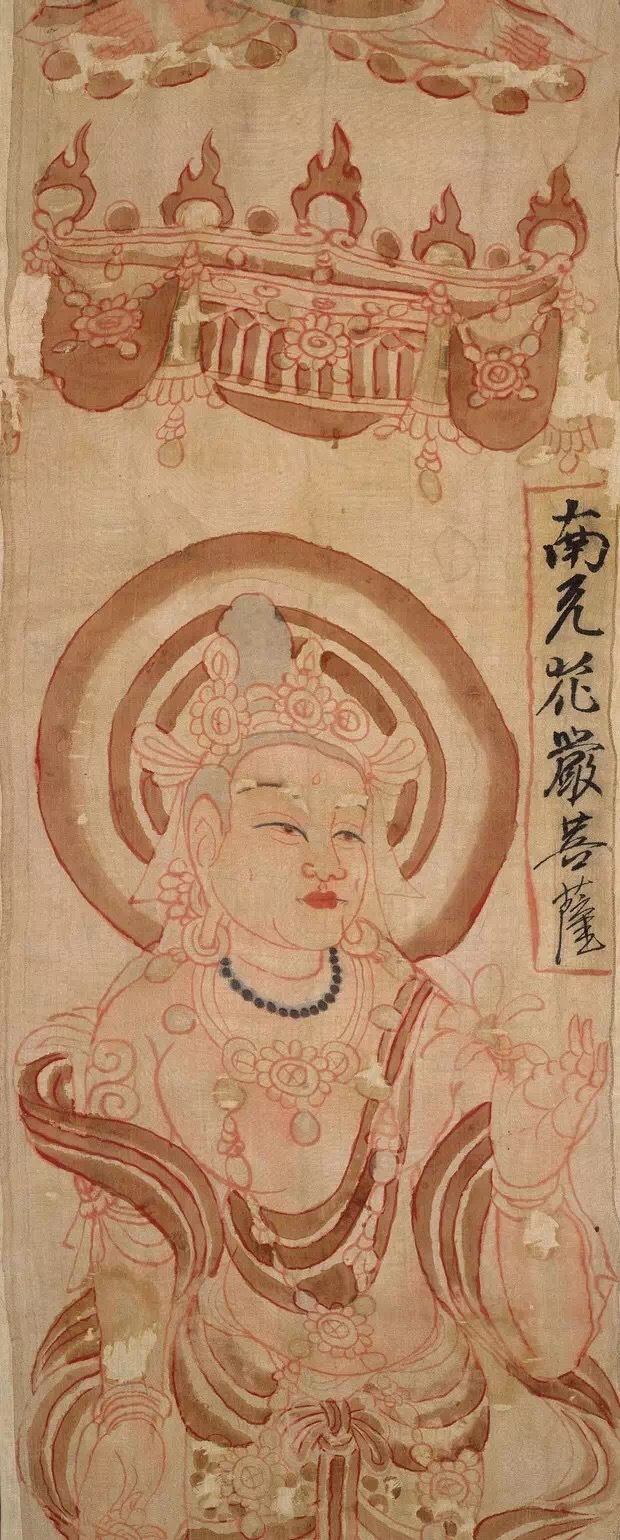 南无花嚴菩薩